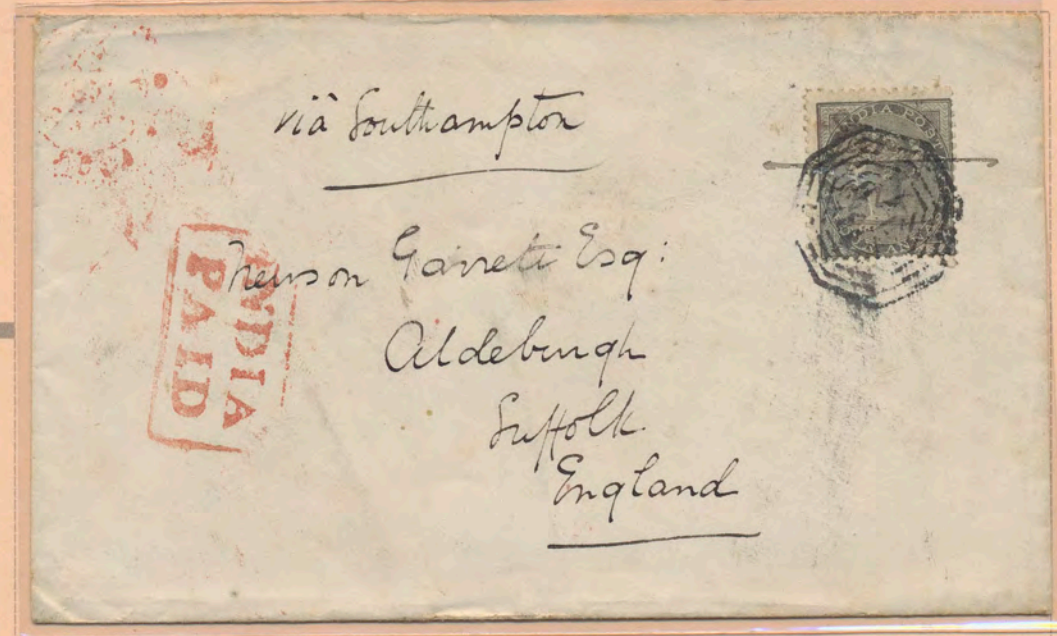 via Southampton
INDIA POST
INDIA
PAID
Newson Garrett Esq:
Aldeburgh
Suffolk.
England